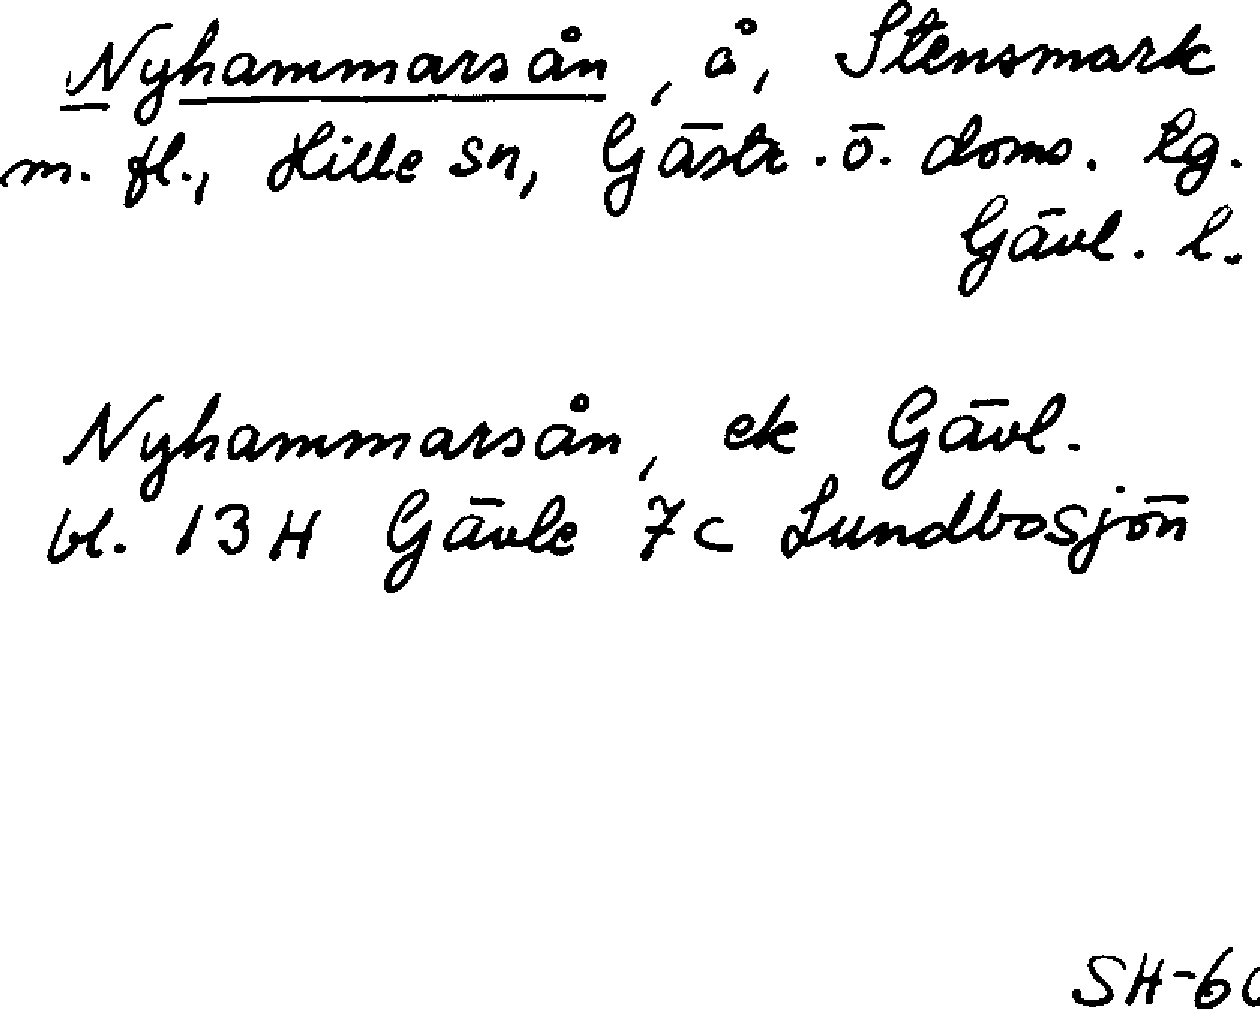 Nyhammarsån, å, Stensmark
m. fl., Hille sn, Gästr. ö. doms. lg.
Gävl. l.
Nyhammarsån, ek Gävl.
bl. 13H Gävle 7c Lundbosjön
SH-60